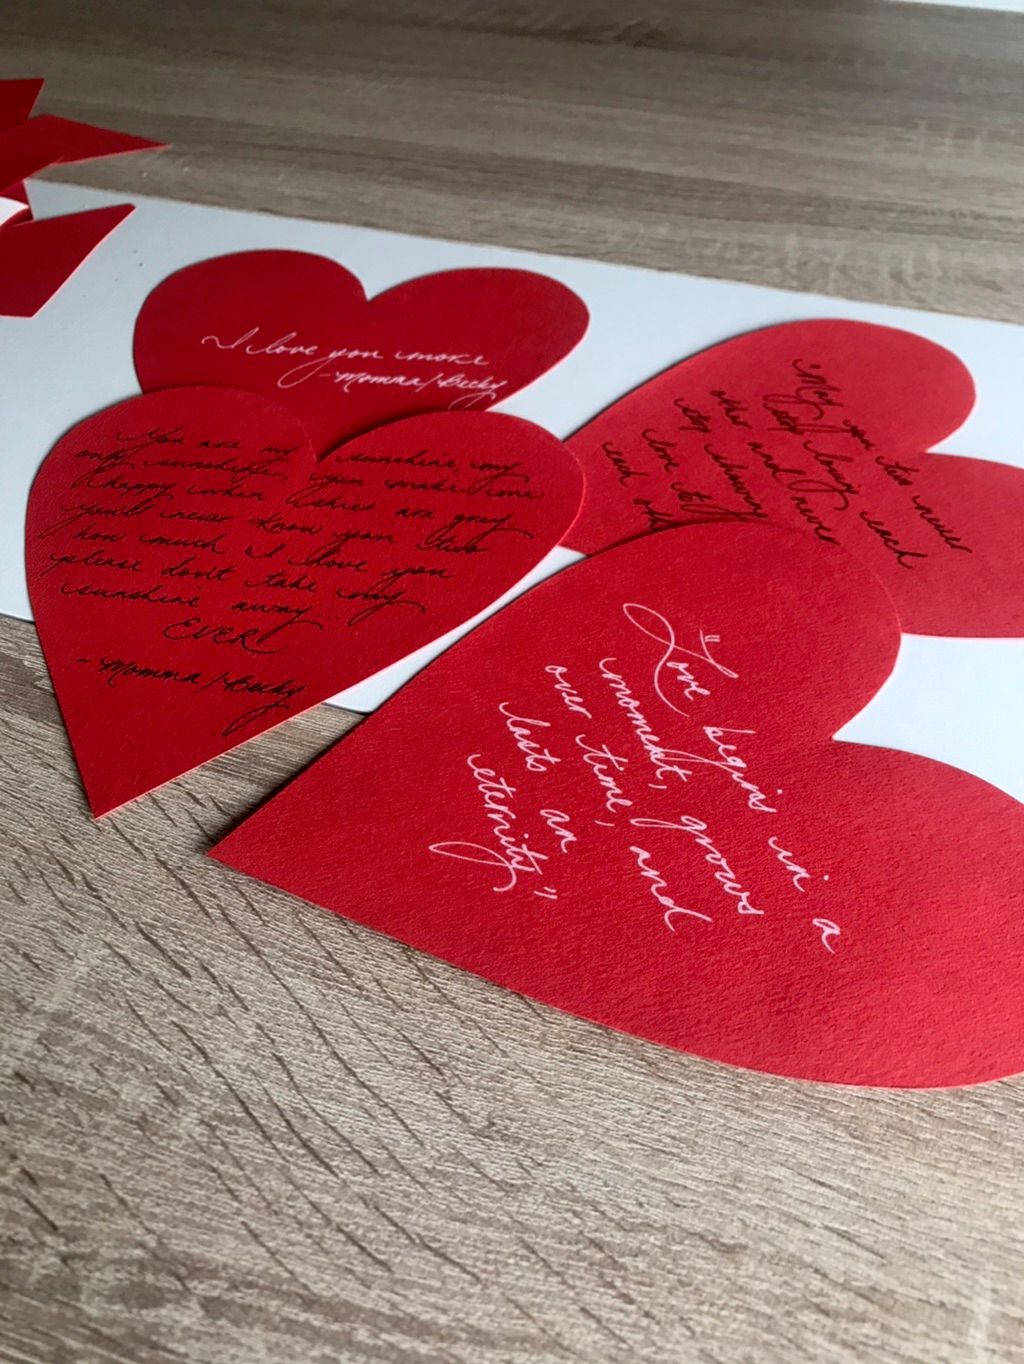 I love you more
- Momma/Becky
You are my sunshine, my
only sunshine, you make me
happy when skies are gray
you'll never know you two
how much I love you
please don't take my
sunshine away
EVER
- Momma/Becky
"May you two never
stop loving each
other and never
stop showing
love to
each
"Love begins in a
moment, grows
over time, and
lasts an
eternity"